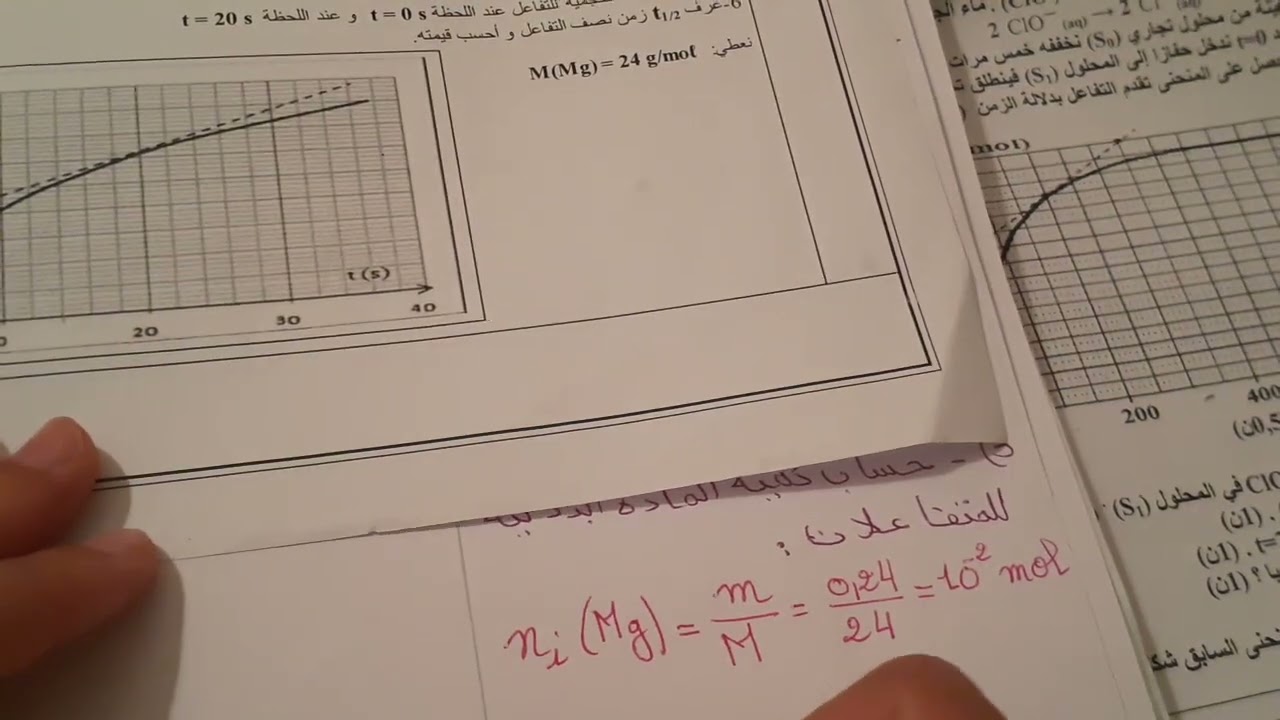 للتفاعل عند اللحظة t = 0 s و عند اللحظة t = 20 s
6-عرف t1/2 زمن نصف التفاعل و أحسب قيمته.
نعطي: M(Mg) = 24 g/mol
t (s)
20
30
40
حساب كمية المادة
للمتفاعلات :
ni (Mg) = m/M = 0,24/24 = 10⁻² mol
2 ClO⁻ (aq) → 2 Cl
من محلول تجاري (S0) نخففه خمس مرات
t=0 ندخل حفازا إلى المحلول (S1) فينطلق
على المنحنى تقدم التفاعل بدلالة الزمن
mol)
200
400
في المحلول (S1) :
(1ن)
(1ن)
(1ن)
المنحنى السابق